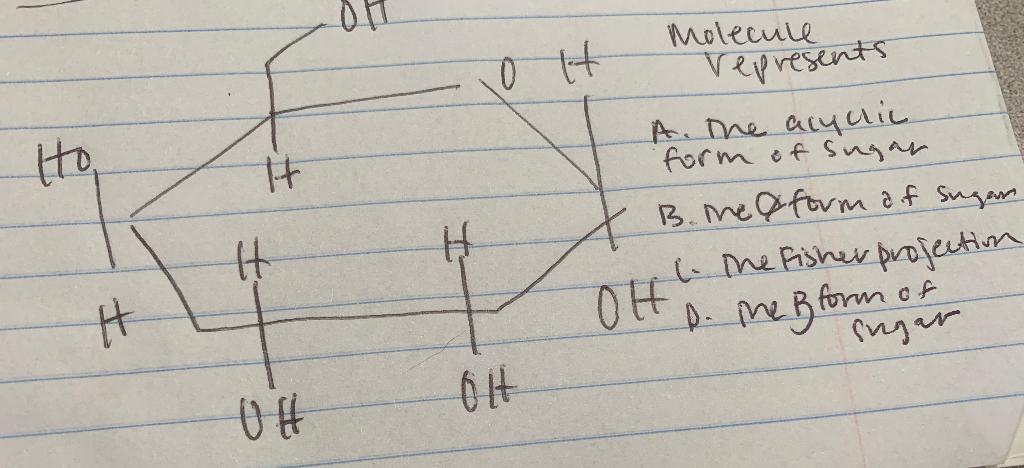 OH
O
H
Molecule
represents
HO
H
A. The acyclic
form of sugar
B. The α form of sugar
H
H
C. The Fisher projection
H
OH
D. The B form of
sugar
OH
OH